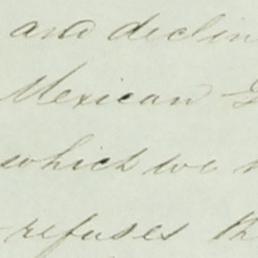 and declin
Mexican G
which we
refuses th